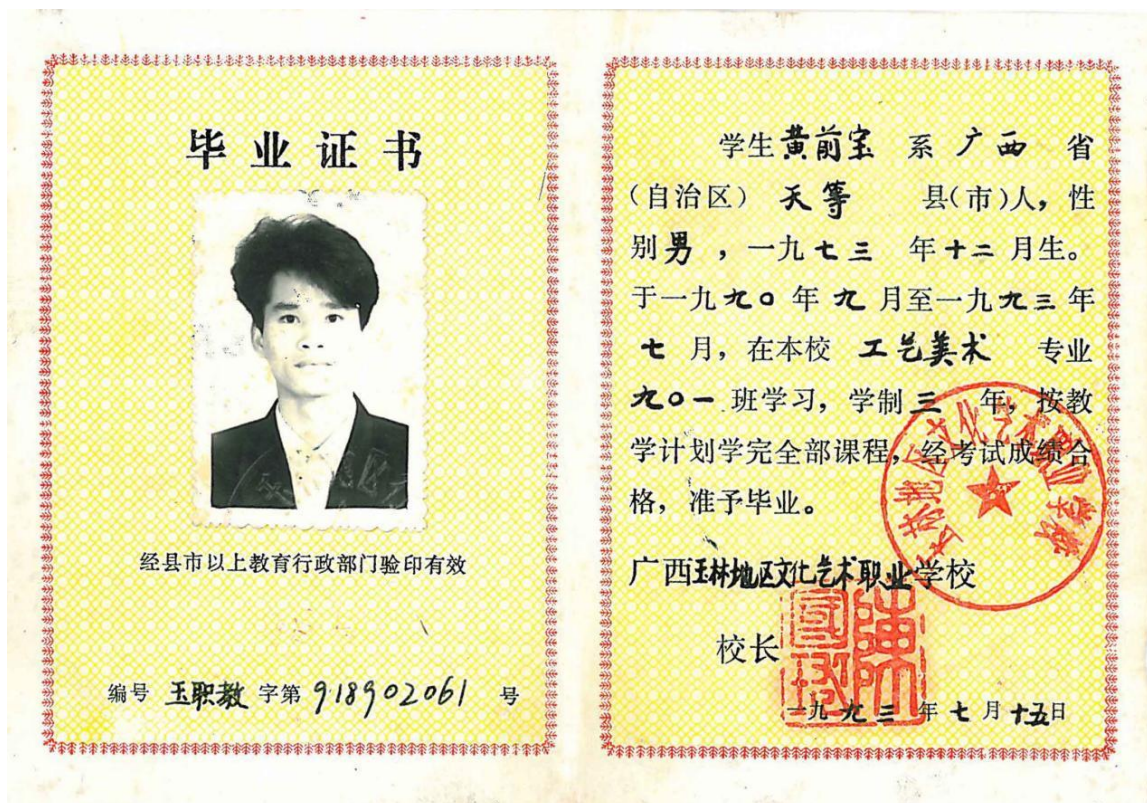 毕业证书
经县市以上教育行政部门验印有效
编号 玉职教 字第 918902061 号
学生黄前宝 系 广西 省
(自治区) 天等 县(市)人，性
别男，一九七三 年十二月生。
于一九九〇年九月至一九九三年
七月，在本校 工艺美术 专业
九〇一班学习，学制三年，按教
学计划学完全部课程，经考试成绩合
格，准予毕业。
广西玉林地区文化艺术职业学校
校长
一九九三年七月十五日